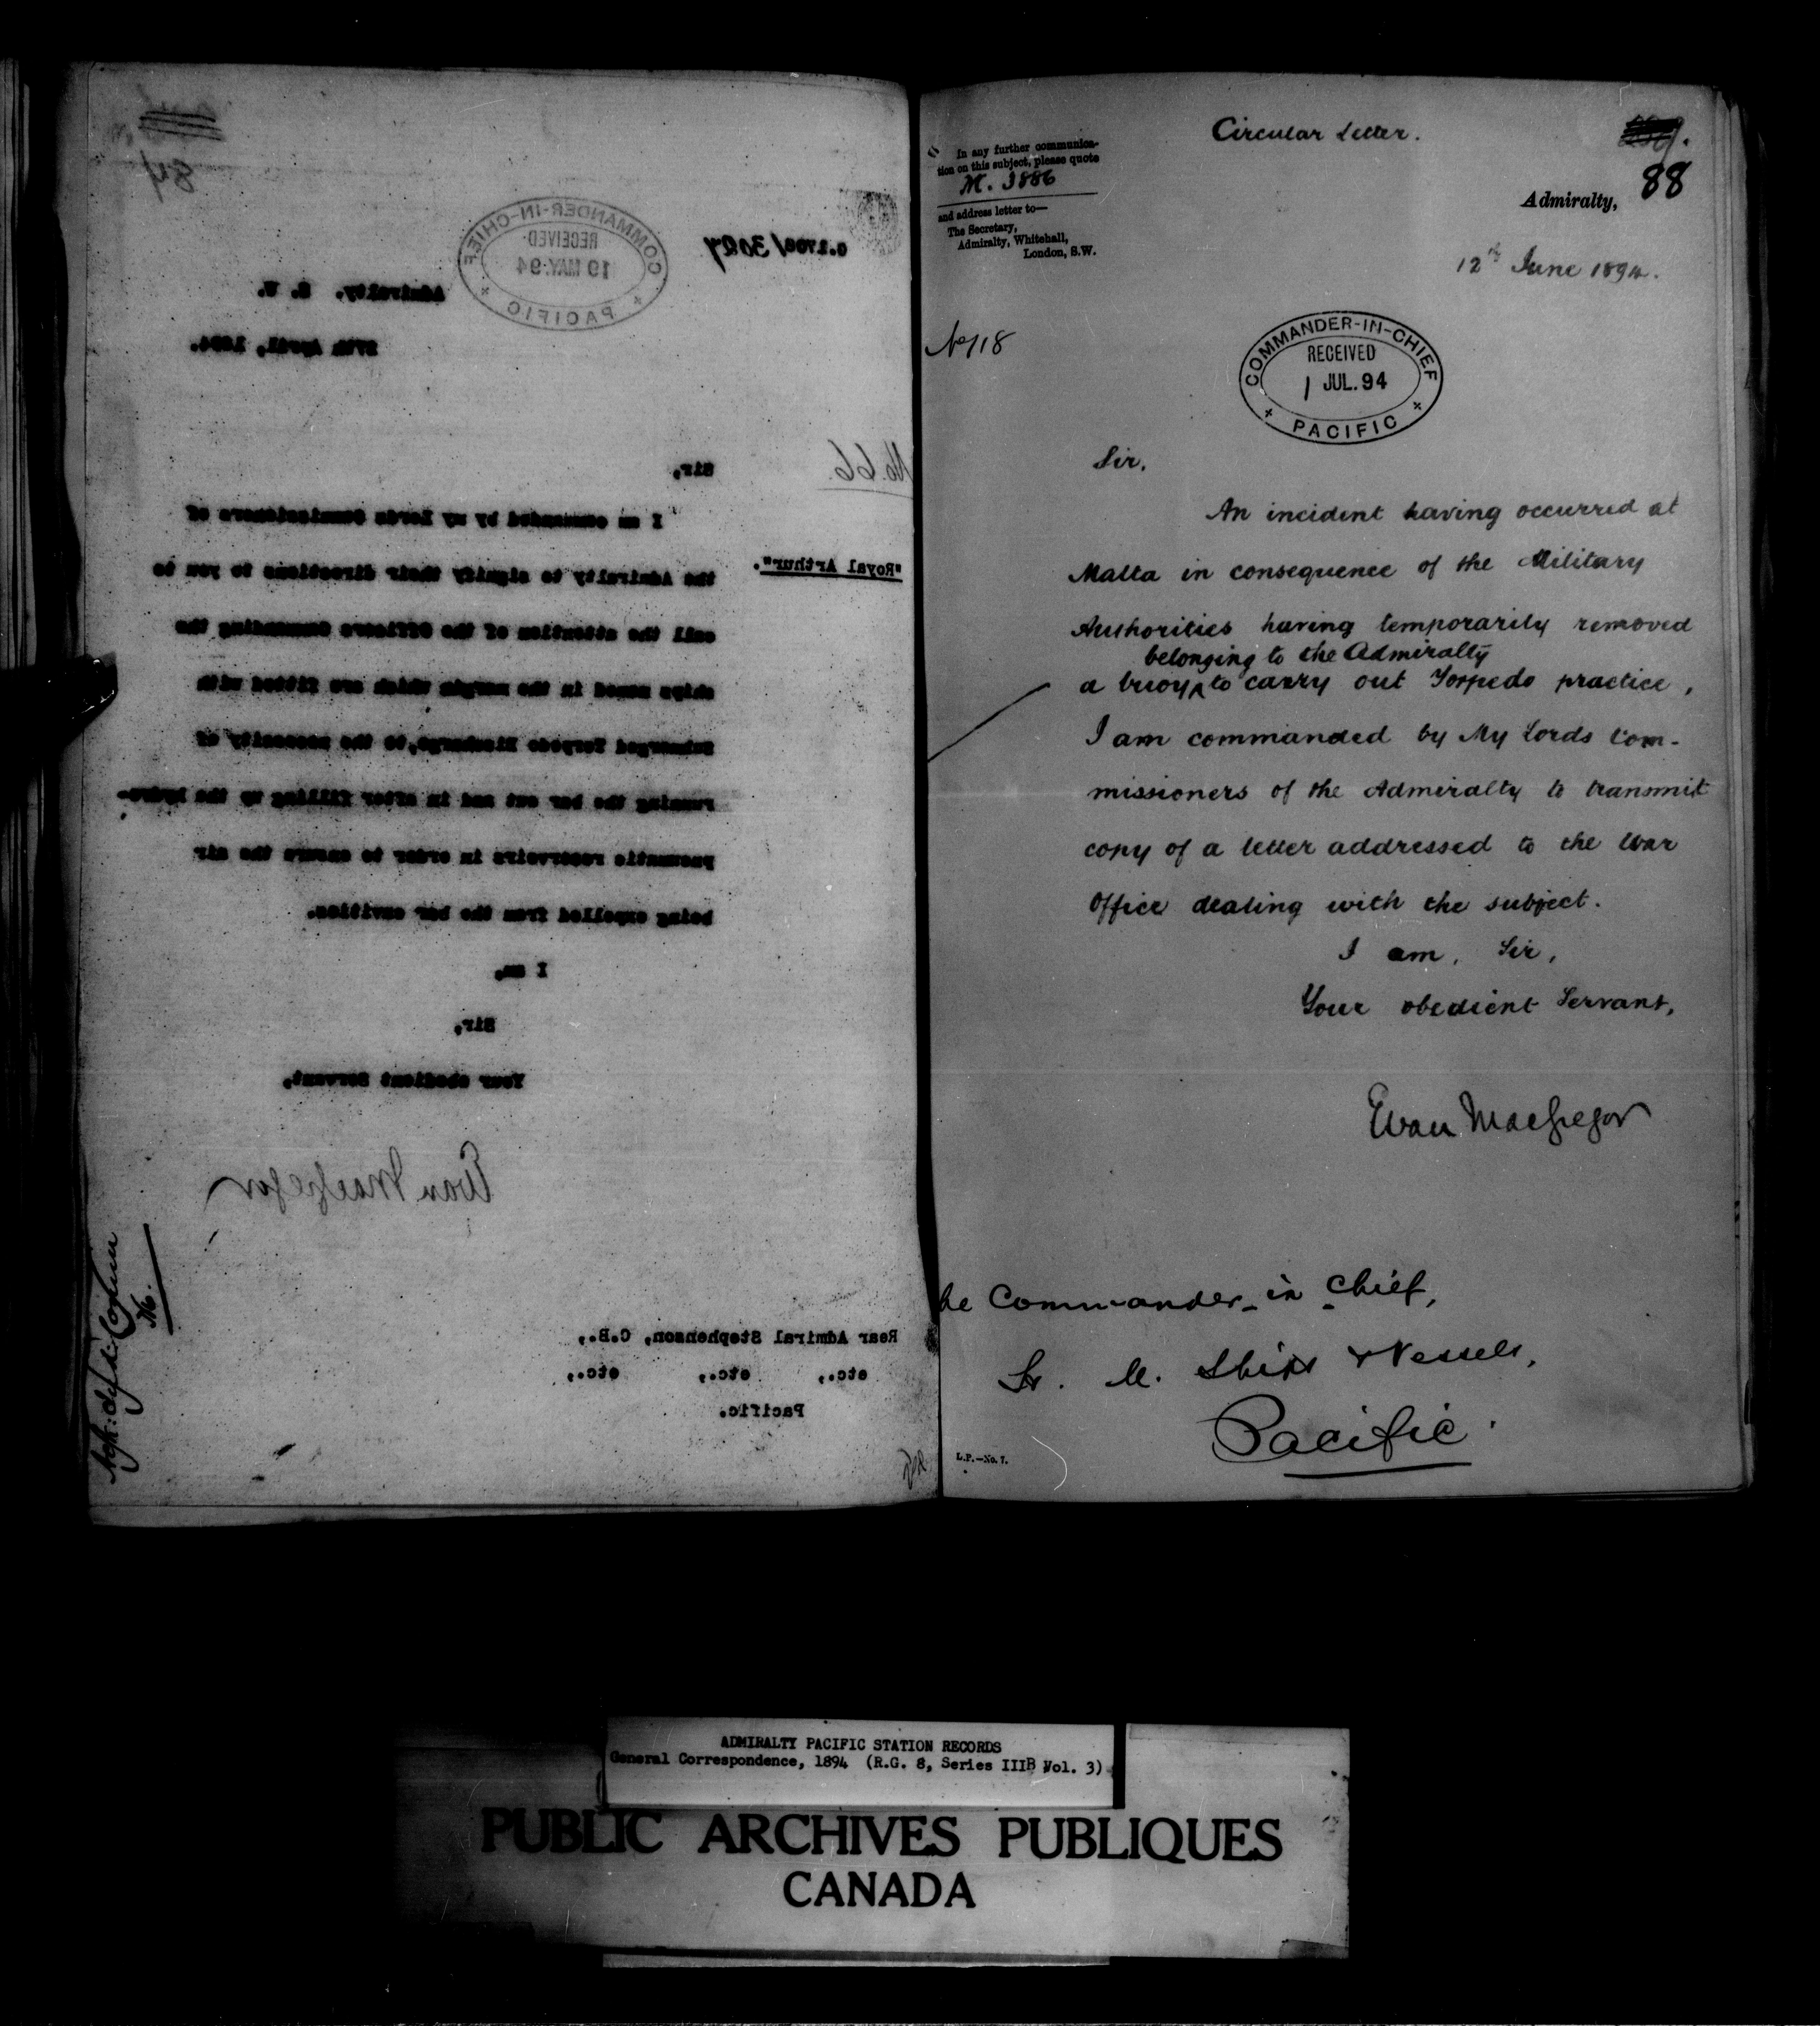 84
G.1706/3027
COMMANDER-IN-CHIEF
RECEIVED
19 MAY.94
PACIFIC
Admiralty. S. W.
27th April, 1894.
No. 66.
Sir,
I am commanded by my Lords Commissioners of
"Royal Arthur".
the Admiralty to signify their directions to you to
call the attention of the Officers Commanding the
ships named in the margin which are fitted with
Submerged Torpedo Discharge, to the necessity of
running the bar out and in after filling up the hydro-
pneumatic reservoirs in order to ensure the air
being expelled from the bar cavities.
I am,
Sir,
Your obedient Servant,
Evan MacGregor
Rear Admiral Stephenson, C.B.,
etc., etc., etc.,
Pacific.
Circular Letter.
In any further communica-
tion on this subject, please quote
M. 3886
and address letter to—
The Secretary,
Admiralty, Whitehall,
London, S.W.
88
Admiralty,
12th June 1894.
No 118
COMMANDER-IN-CHIEF
RECEIVED
1 JUL.94
PACIFIC
Sir,
An incident having occurred at
Malta in consequence of the Military
Authorities having temporarily removed
belonging to the Admiralty
a buoy to carry out Torpedo practice,
I am commanded by My Lords Com-
missioners of the Admiralty to transmit
copy of a letter addressed to the War
Office dealing with the subject.
I am, Sir,
Your obedient Servant,
Evan MacGregor
he Commander-in-Chief,
H. M. Ships & Vessels,
Pacific.
L.P.—No. 7.
ADMIRALTY PACIFIC STATION RECORDS
General Correspondence, 1894 (R.G. 8, Series IIIB Vol. 3)
PUBLIC ARCHIVES PUBLIQUES
CANADA